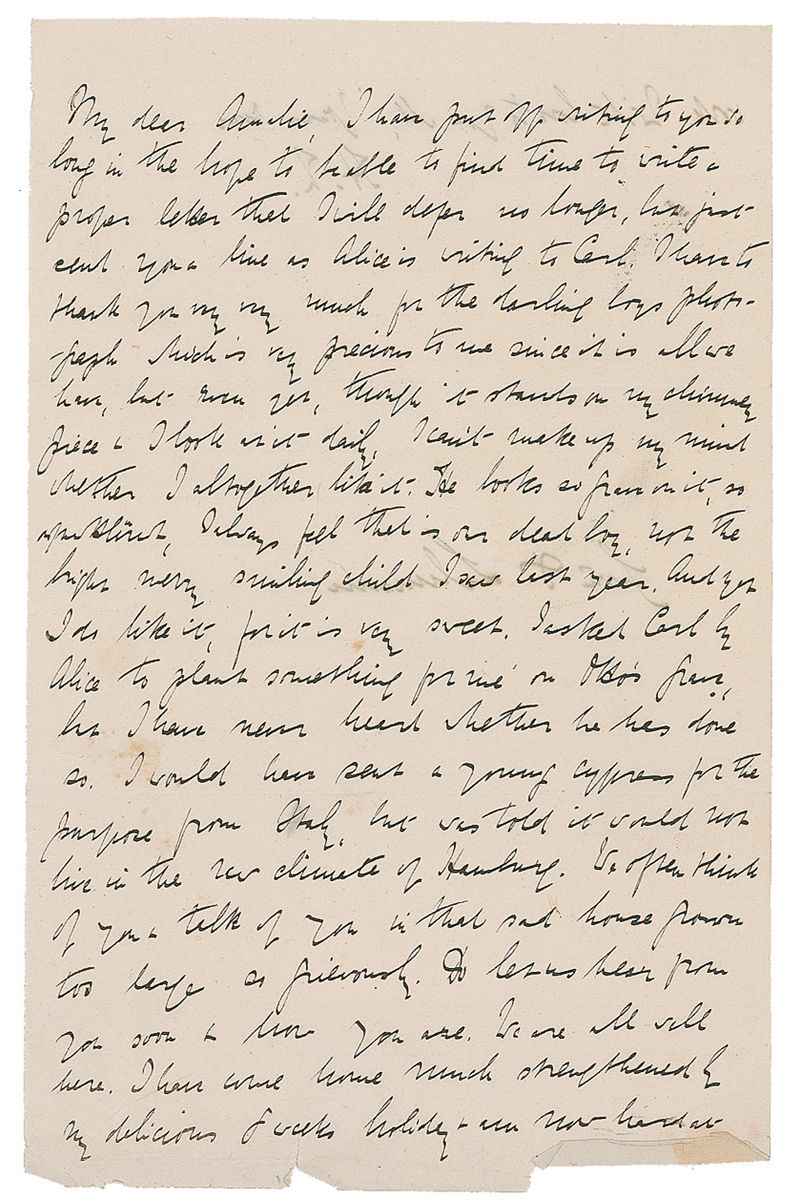 My dear Amalie, I have put off writing to you so
long in the hope to be able to find time to write a
proper letter that I will defer no longer, but just
send you a line as Alice is writing to Carl. I have to
thank you very very much for the darling boys photo-
-graph which is very precious to me since it is all we
have, but even yet, though it stands on my chimney
piece & I look at it daily, I can't make up my mind
whether I altogether like it. He looks so grave on it, so
I always feel that is our dead boy, not the
bright merry smiling child I saw last year. And yet
I do like it, for it is very sweet. I asked Carl by
Alice to plant something for me on Otto's grave,
but I have never heard whether he has done
so. I would have sent a young cypress for the
purpose from Italy, but was told it would not
live in the raw climate of Hamburg. We often think
of you & talk of you in that sad house grown
too large so grievously. Do let us hear from
you soon & how you are. We are all well
here. I have come home much strengthened by
my delicious 8 weeks holiday & am now hard at